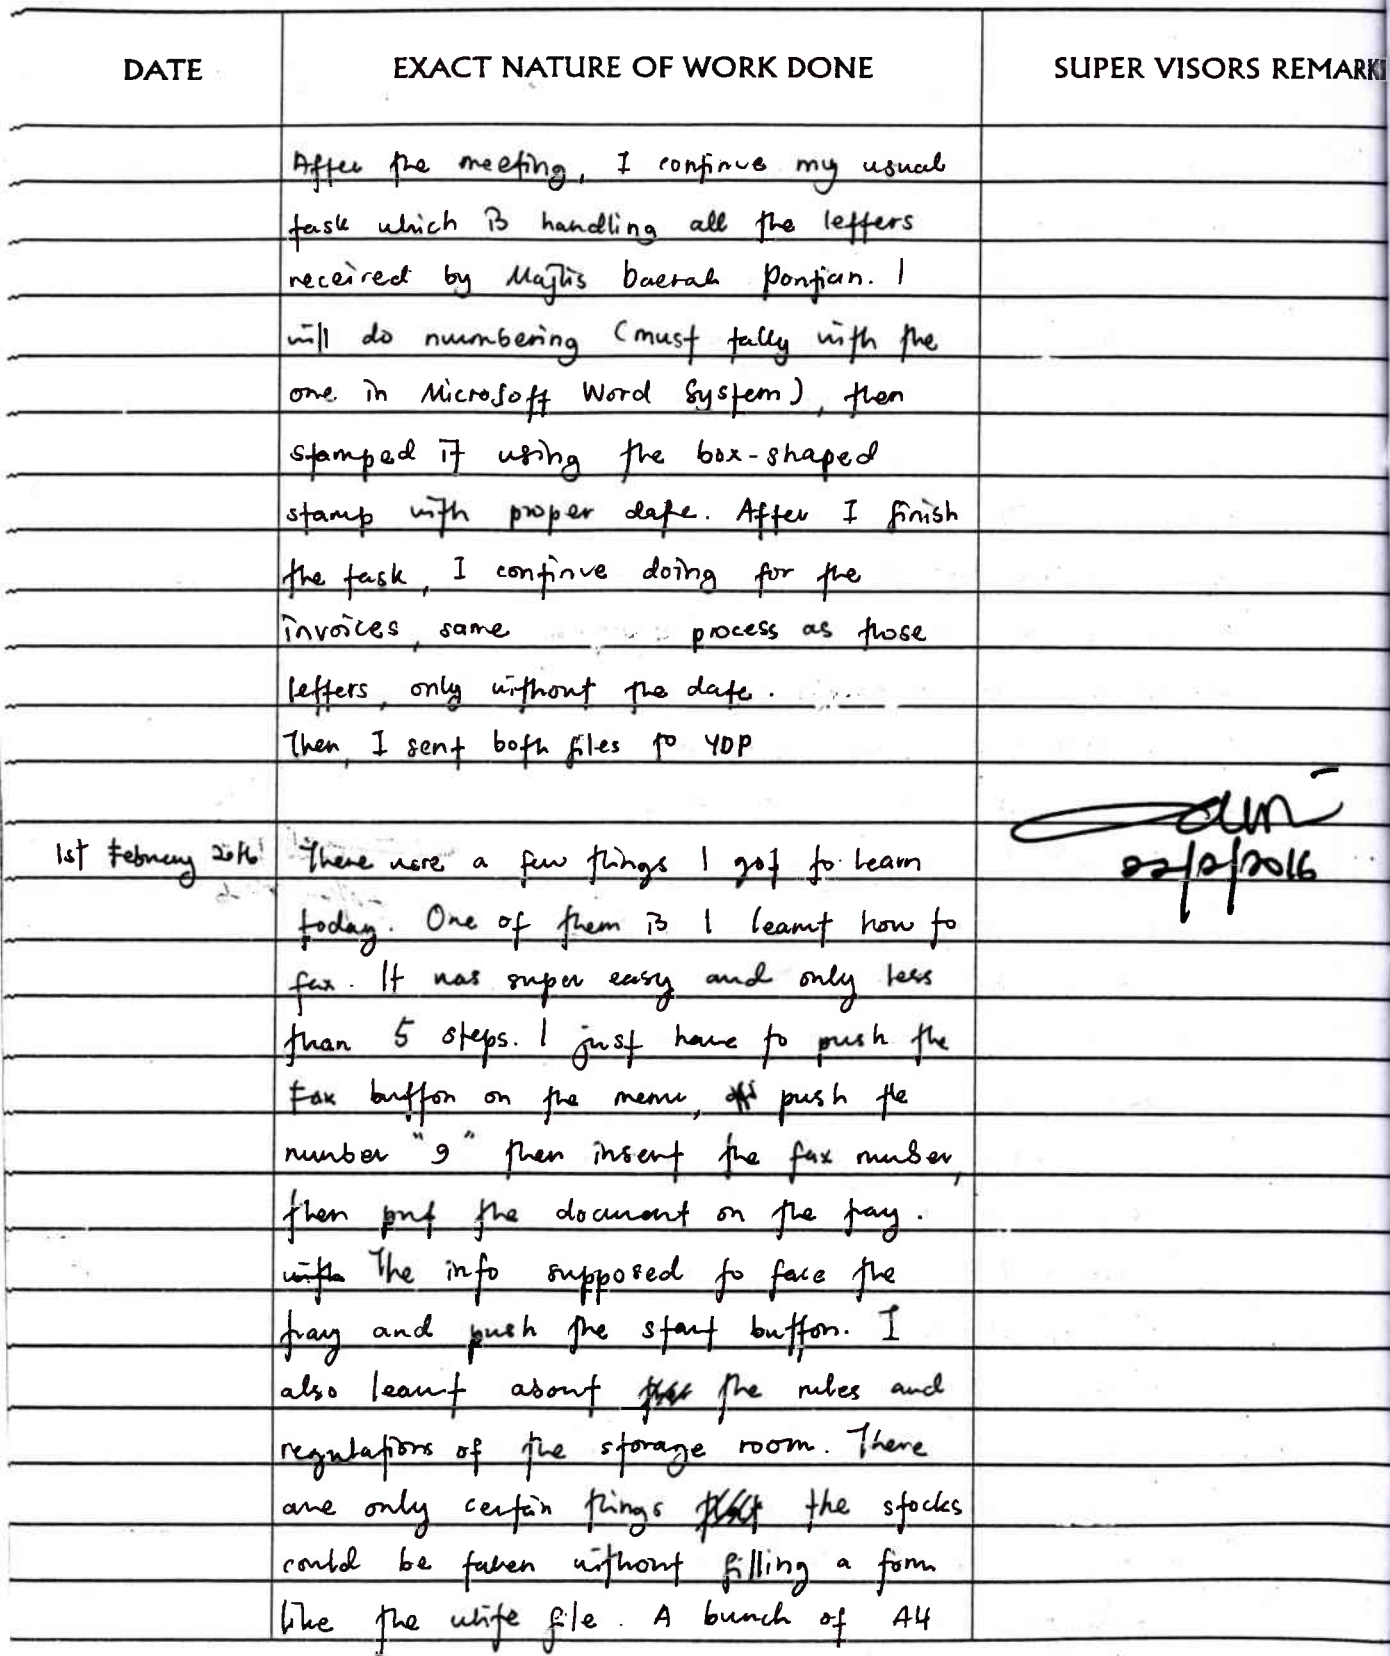 DATE EXACT NATURE OF WORK DONE SUPER VISORS REMARK
After the meeting, I continue my usual
task which is handling all the letters
received by Majlis Daerah Pontian. I
will do numbering (must tally with the
one in Microsoft Word System), then
stamped it using the box-shaped
stamp with proper date. After I finish
the task, I continue doing for the
invoices, same process as those
letters, only without the date.
Then, I sent both files to YDP
1st February 2016 There were a few things I got to learn
22/2/2016
today. One of them is I learnt how to
fax. It was super easy and only less
than 5 steps. I just have to push the
Fax button on the menu, push the
number "9" then insert the fax number,
then put the document on the tray.
with The info supposed to face the
tray and push the start button. I
also learnt about the rules and
regulations of the storage room. There
are only certain things the stocks
could be taken without filling a form
like the white file. A bunch of A4